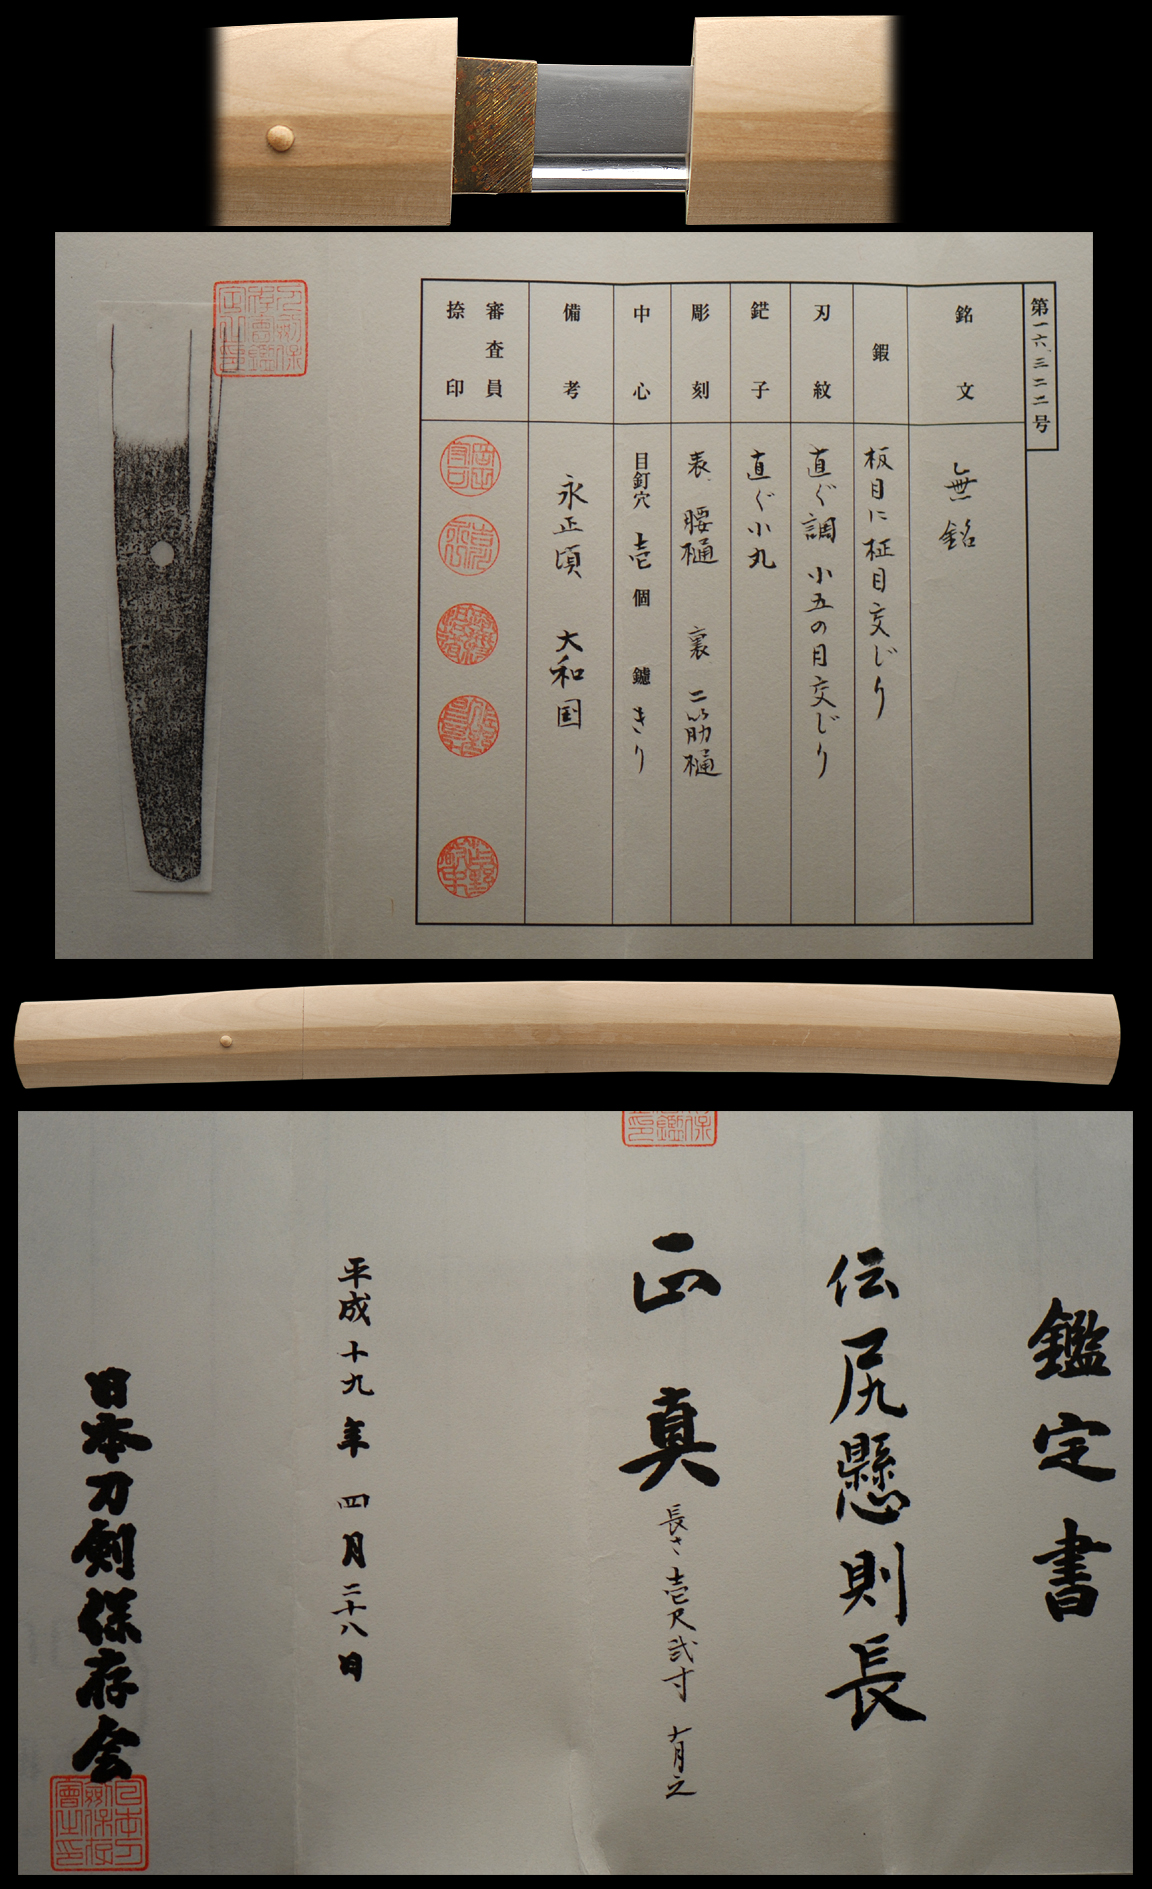 第一六三二二号
銘文
無銘
鍛
板目に柾目交じり
刃紋
直ぐ調 小五の目交じり
鋩子
直ぐ小丸
彫刻
表 腰樋 裏 二筋樋
中心
目釘穴 壱個 鑢 きり
備考
永正頃 大和国
審査員
捺印
鑑定書
伝 尻懸則長
正真
長さ 壱尺弐寸 有之
平成十九年 四月二十八日
日本刀剣保存会